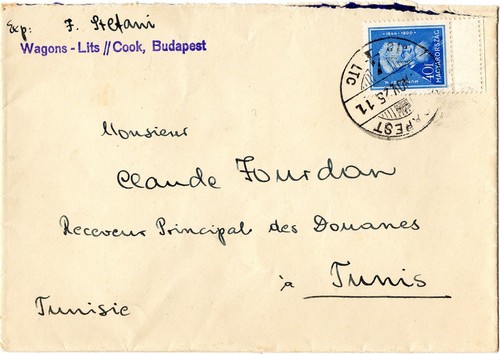 Exp: F. Stefani
Wagons-Lits // Cook, Budapest
1844-1900
MAGYARORSZÁG
40f
Monsieur
Claude Fourdan
Receveur Principal des Douanes
à Tunis
Tunisie